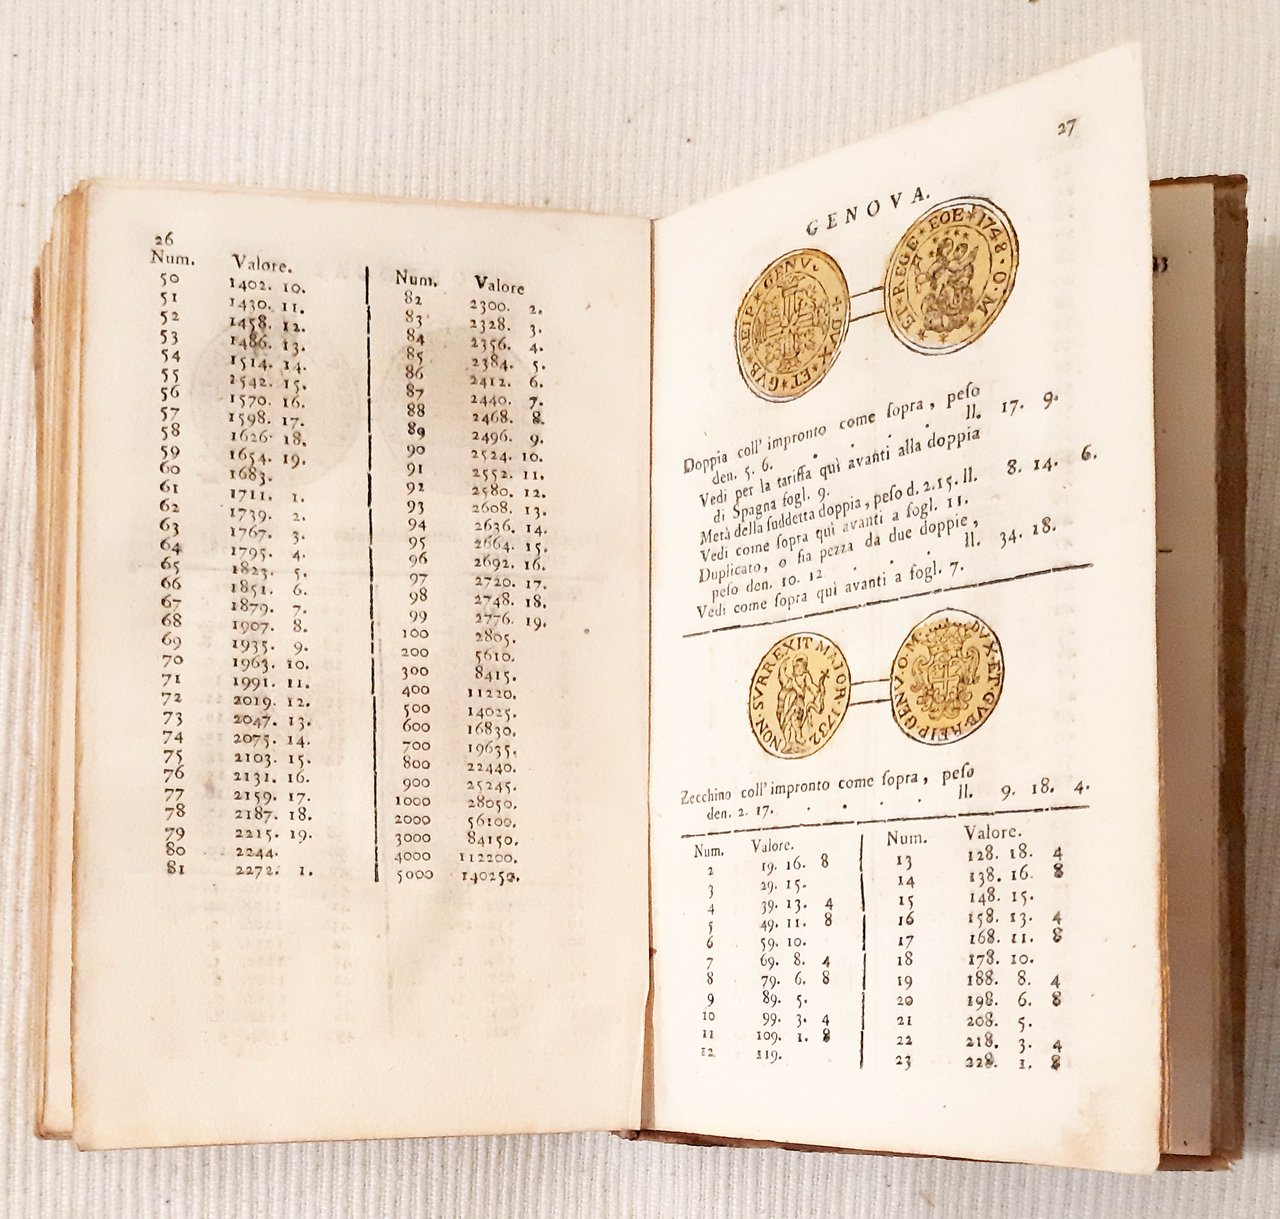 26
Num. Valore.
50 1402. 10.
51 1430. 11.
52 1458. 12.
53 1486. 13.
54 1514. 14.
55 1542. 15.
56 1570. 16.
57 1598. 17.
58 1626. 18.
59 1654. 19.
60 1683.
61 1711. 1.
62 1739. 2.
63 1767. 3.
64 1795. 4.
65 1823. 5.
66 1851. 6.
67 1879. 7.
68 1907. 8.
69 1935. 9.
70 1963. 10.
71 1991. 11.
72 2019. 12.
73 2047. 13.
74 2075. 14.
75 2103. 15.
76 2131. 16.
77 2159. 17.
78 2187. 18.
79 2215. 19.
80 2244.
81 2272. 1.
Num. Valore
82 2300. 2.
83 2328. 3.
84 2356. 4.
85 2384. 5.
86 2412. 6.
87 2440. 7.
88 2468. 8.
89 2496. 9.
90 2524. 10.
91 2552. 11.
92 2580. 12.
93 2608. 13.
94 2636. 14.
95 2664. 15.
96 2692. 16.
97 2720. 17.
98 2748. 18.
99 2776. 19.
100 2805.
200 5610.
300 8415.
400 11220.
500 14025.
600 16830.
700 19635.
800 22440.
900 25245.
1000 28050.
2000 56100.
3000 84150.
4000 112200.
5000 140250.
27
GENOVA.
+ DVX · ET · GVB · REIP · GENV.
ET · REGE · EOE · 1748 · O · M
Doppia coll' impronto come ſopra, peſo
den. 5. 6. . . . ll. 17. 9.
Vedi per la tariffa quì avanti alla doppia
di Spagna fogl. 9.
Metà della ſuddetta doppia, peſo d. 2. 15. ll. 8. 14. 6.
Vedi come ſopra quì avanti a fogl. 11.
Duplicato, o ſia pezza da due doppie,
peſo den. 10. 12 . . . ll. 34. 18.
Vedi come ſopra quì avanti a fogl. 7.
NON · SVRREXIT MAJOR · 1732
DVX · ET · GVB · REIP · GENV · O · M ·
Zecchino coll' impronto come ſopra, peſo
den. 2. 17. . . . . ll. 9. 18. 4.
Num. Valore.
2 19. 16. 8
3 29. 15.
4 39. 13. 4
5 49. 11. 8
6 59. 10.
7 69. 8. 4
8 79. 6. 8
9 89. 5.
10 99. 3. 4
11 109. 1. 8
12 119.
Num. Valore.
13 128. 18. 4
14 138. 16. 8
15 148. 15.
16 158. 13. 4
17 168. 11. 8
18 178. 10.
19 188. 8. 4
20 198. 6. 8
21 208. 5.
22 218. 3. 4
23 228. 1. 8
33